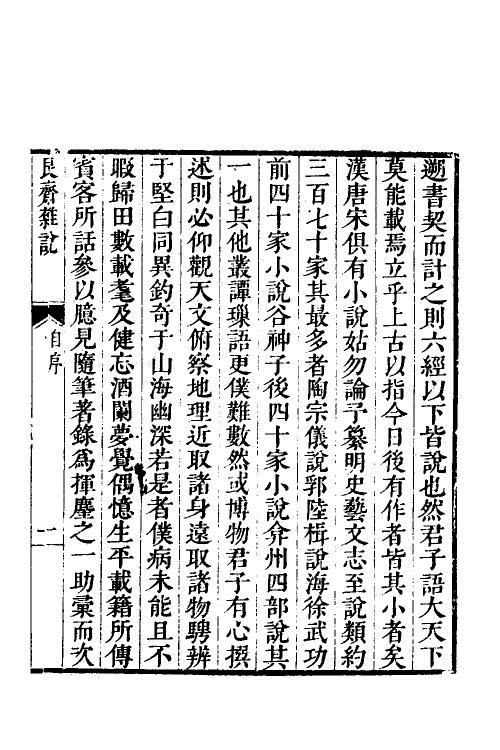 遡書契而計之則六經以下皆說也然君子語大天下
莫能載焉立乎上古以指今日後有作者皆其小者矣
漢唐宋俱有小說姑勿論予纂明史藝文志至說類約
三百七十家其最多者陶宗儀說郛陸楫說海徐武功
前四十家小說谷神子後四十家小說弇州四部說其
一也其他叢譚璅語更僕難數然或博物君子有心撰
述則必仰觀天文俯察地理近取諸身遠取諸物騁辨
于堅白同異鈞奇于山海幽深若是者僕病未能且不
暇歸田數載耄及健忘酒闌夢覺偶憶生平載籍所傳
賓客所話參以臆見隨筆著錄爲揮麈之一助彙而次
艮齋雜說
自序
二